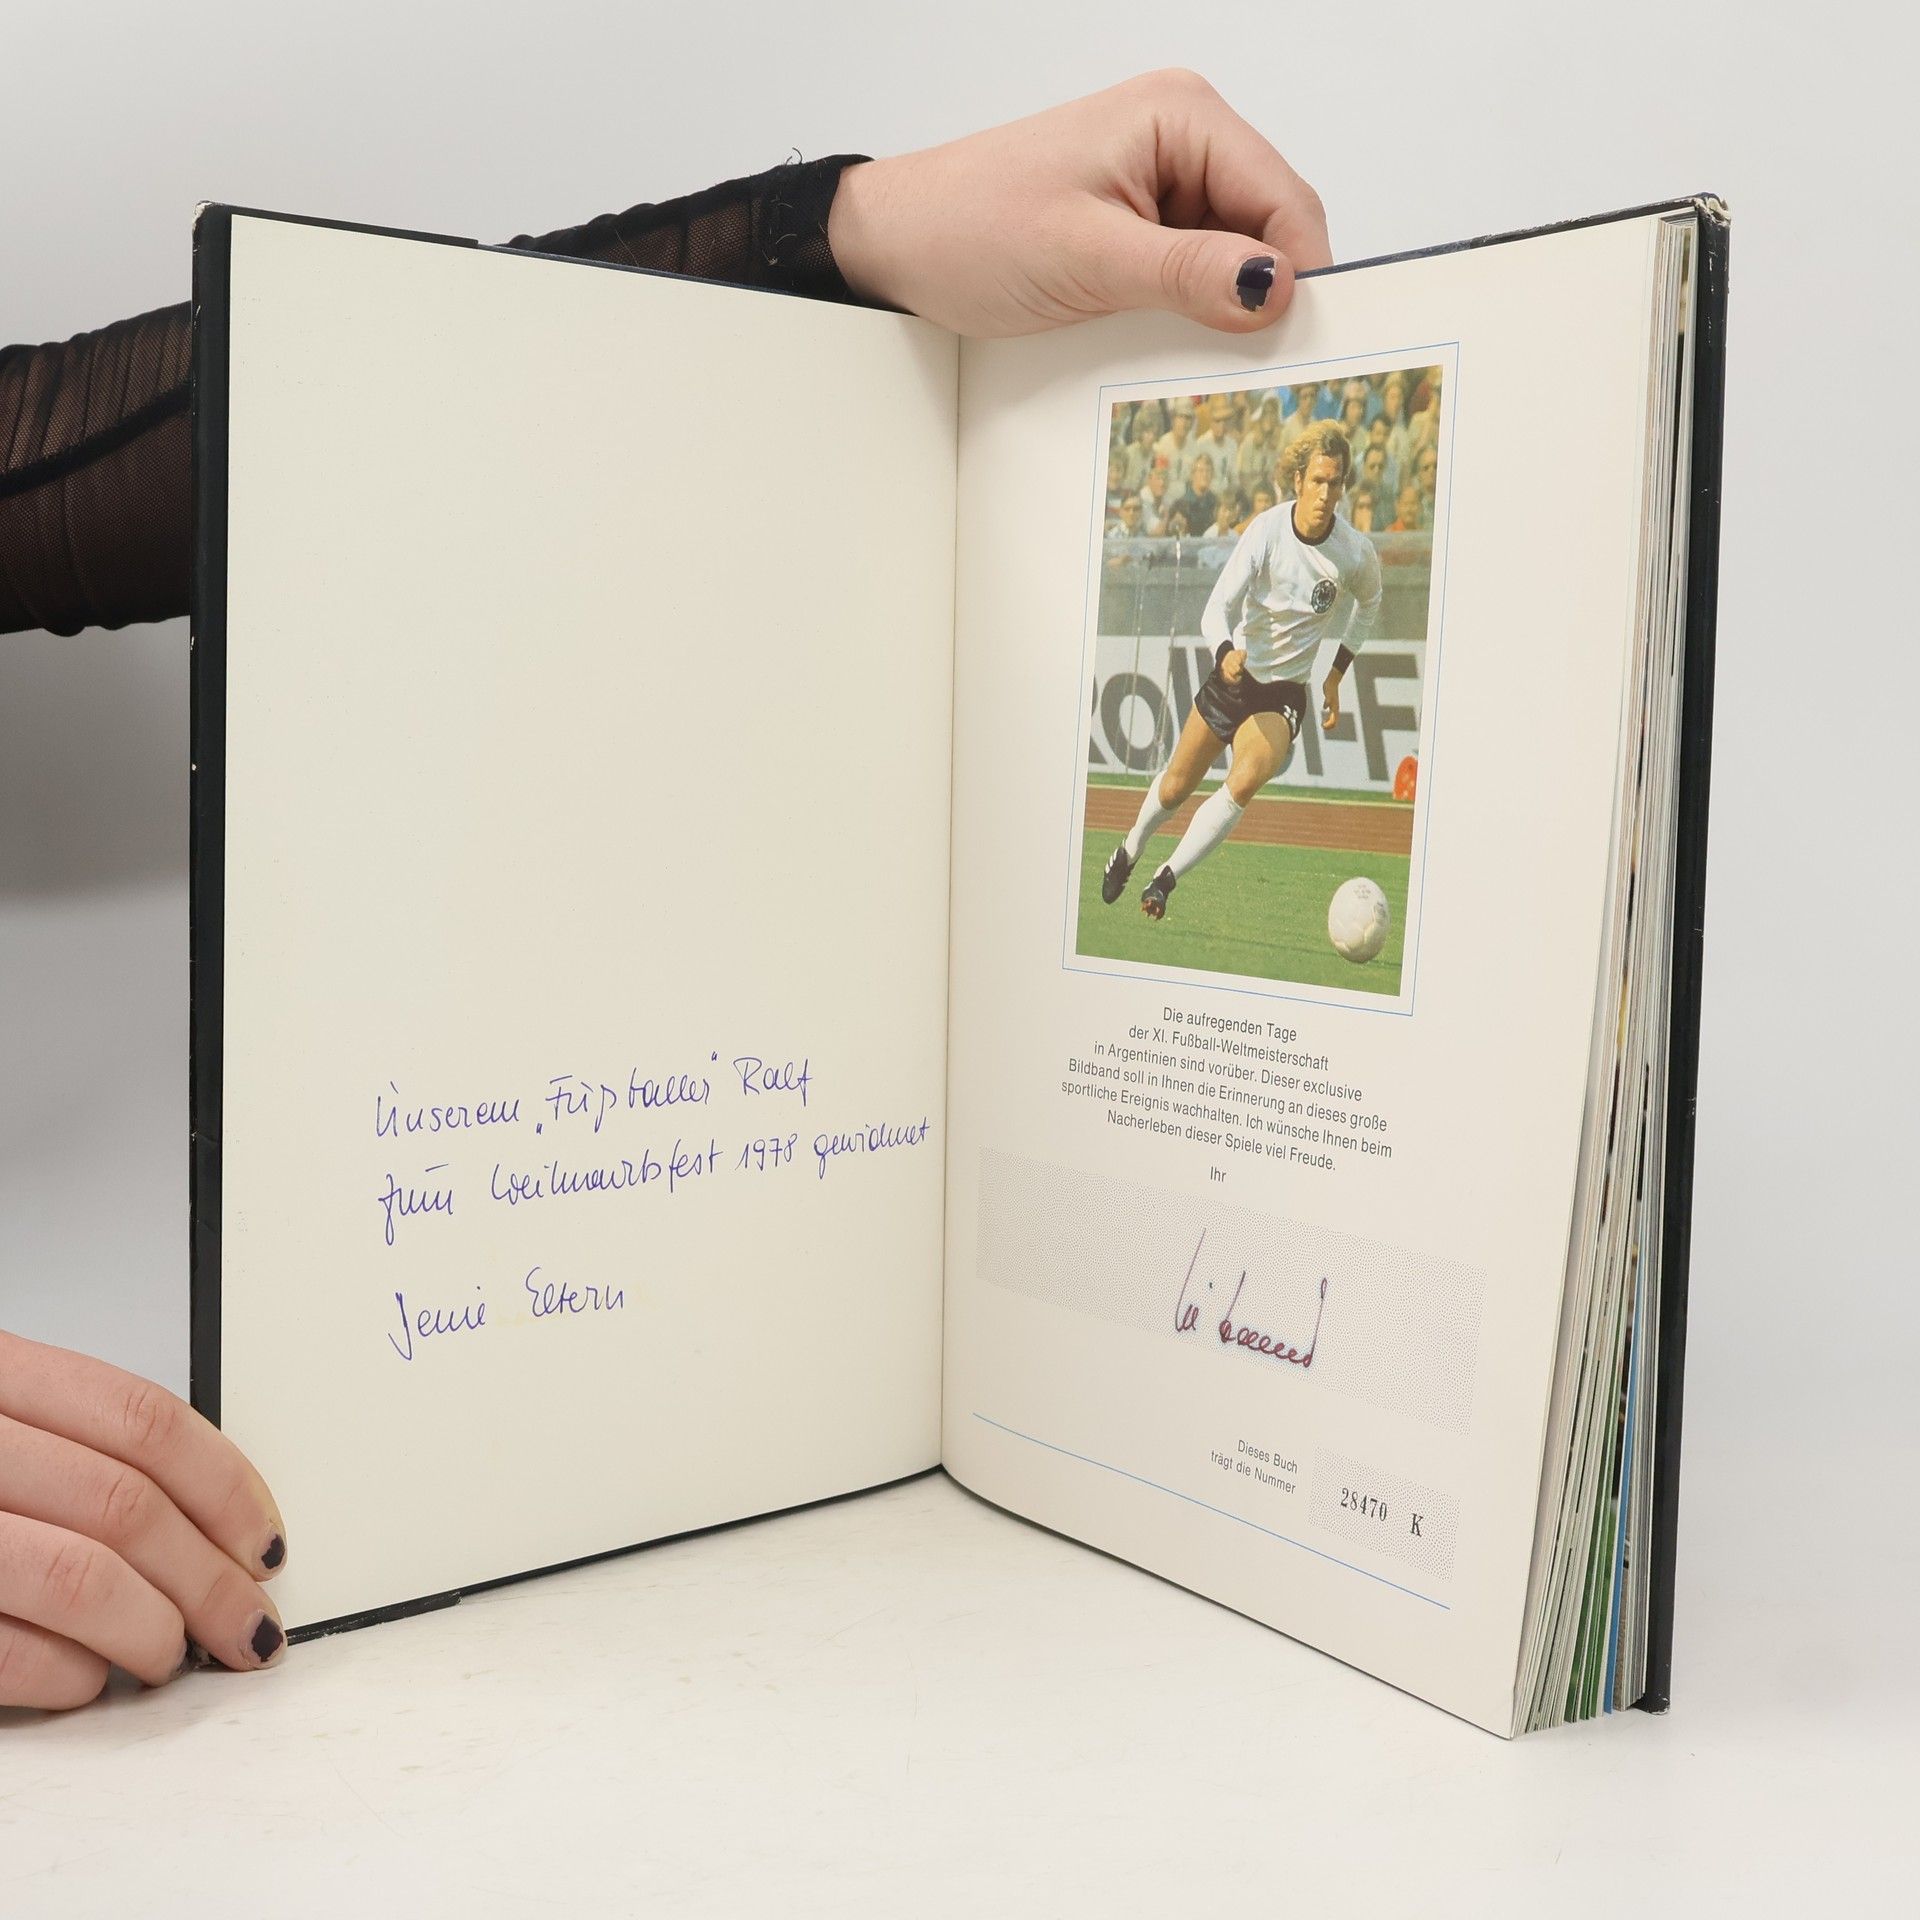 Unserem „Fußballer" Ralf
zum Weihnachtsfest 1978 gewidmet
Deine Eltern
Die aufregenden Tage
der XI. Fußball-Weltmeisterschaft
in Argentinien sind vorüber. Dieser exclusive
Bildband soll in Ihnen die Erinnerung an dieses große
sportliche Ereignis wachhalten. Ich wünsche Ihnen beim
Nacherleben dieser Spiele viel Freude.
Ihr
Dieses Buch
trägt die Nummer
28470 K